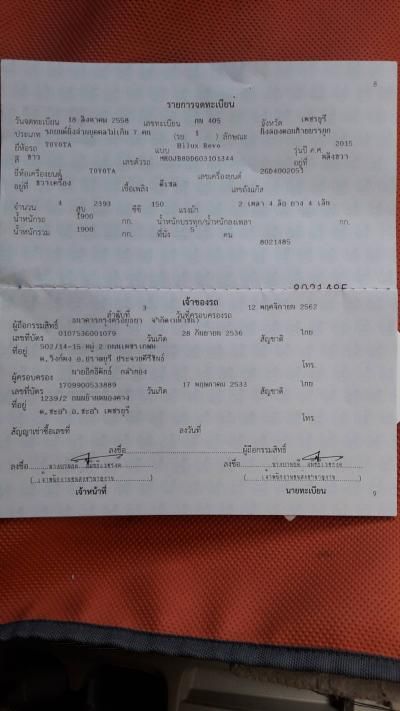 8
รายการจดทะเบียน
วันจดทะเบียน 18 สิงหาคม 2558 เลขทะเบียน กท 405 จังหวัด เพชรบุรี
ประเภท รถยนต์นั่งส่วนบุคคลไม่เกิน 7 คน (รย. 1 ) ลักษณะ นั่งสองตอนท้ายบรรทุก
ยี่ห้อรถ TOYOTA แบบ Hilux Revo รุ่นปี ค.ศ. 2015
สี ขาว เลขตัวรถ MR0JB8DD603101344 อยู่ที่
ยี่ห้อเครื่องยนต์ TOYOTA เลขเครื่องยนต์ 2GD4002051
อยู่ที่ ขวาเครื่อง เชื้อเพลิง ดีเซล เลขถังแก๊ส
จำนวน 4 สูบ 2393 ซีซี 150 แรงม้า 2 เพลา 4 ล้อ ยาง 4 เส้น
น้ำหนักรถ 1900 กก. น้ำหนักบรรทุก/น้ำหนักลงเพลา กก.
น้ำหนักรวม 1900 กก. ที่นั่ง 5 คน
8021485
8021485
เจ้าของรถ
ลำดับที่ 3 วันที่ครอบครองรถ 12 พฤศจิกายน 2562
ผู้ถือกรรมสิทธิ์ ธนาคารกรุงศรีอยุธยา จำกัด(มหาชน)
เลขที่บัตร 0107536001079 วันเกิด 28 กันยายน 2536 สัญชาติ ไทย
ที่อยู่ 502/14-15 หมู่ 2 ถนนเพชรเกษม
ต.วังก์พง อ.ปราณบุรี ประจวบคีรีขันธ์ โทร.
ผู้ครอบครอง นายอิทธิพัทธ์
เลขที่บัตร 1709900533889 วันเกิด 17 พฤษภาคม 2533 สัญชาติ ไทย
ที่อยู่ 1239/2
ต.ชะอำ อ.ชะอำ เพชรบุรี โทร
สัญญาเช่าซื้อเลขที่ ลงวันที่
ลงชื่อ ผู้ถือกรรมสิทธิ์
ลงชื่อ ลงชื่อ
เจ้าหน้าที่ นายทะเบียน
9